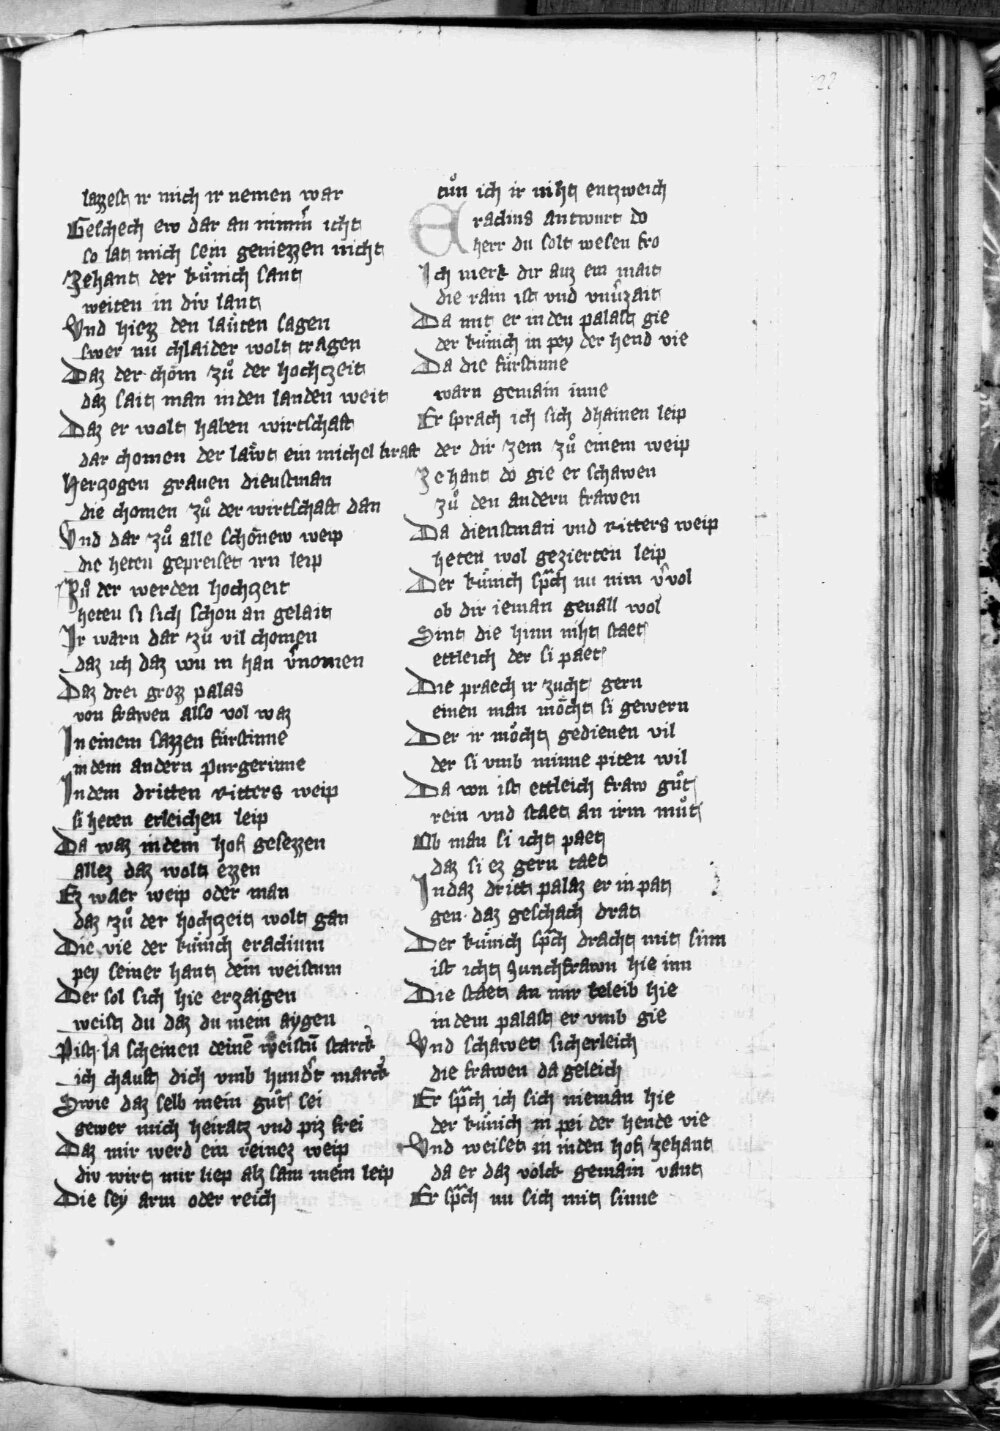 lazzest ir mich ir nemen war
Geschech ew dar an nimm̃ icht
so lat mich sein geniezzen nicht
Zehant der kuͤnich sant
weiten in div lant
Vnd hiezz den laͤuten sagen
swer nu chlaider wolt tragen
Daz der choͤm zuͦ der hochzeit
daz sait man in den landen weit
Daz er wolt haben wirtschaft
dar chomen der laͤwt ein michel kraft
Herzogen grauen dienstman
die chomen zuͦ der wirtschaft dan
Vnd dar zuͦ alle schoͤnew weip
die heten gepreiset irn leip
Zuͦ der werden hochzeit
heten si sich schon an gelait
Ir warn dar zuͦ vil chomen
daz ich daz wunn han v̉nomen
Daz drei grozz palas
von frawen also vol waz
In einem sazzen fuͤrstinne
in dem andern purgerinne
In dem dritten ritters weip
si heten erleichen leip
Da waz in dem hof gesezzen
allez daz wolt ezzen
Ez waer weip oder man
daz zuͦ der hochzeit wolt gan
Die vie der kuͤnich eradium
pey seiner hant dein weistum
Der sol sich hie erzaigen
weist du daz du mein aygen
Pist la scheinen deinē weistū starck
ich chauft dich vmb hundt̉ marck
Swie daz selb mein guͦt sei
gewer mich heiratz vnd piz frei
Daz mir werd ein reinez weip
div wirt mir liep alz sam mein leip
Die sey arm oder reich
tuͦn ich ir niht entzweich
Eradius antwurt do
herr du solt wesen fro
Ich merk dir auz ein mait
die rain ist vnd vnv̉zait
Da mit er in den palast gie
der kuͤnich in pey der hend vie
Da die fuͤrstinne
warn gemain inne
Er sprach ich sich dhainen leip
der dir zem zuͦ einem weip
Zehant do gie er schawen
zuͦ den andern frawen
Da dienstman vnd ritters weip
heten wol gezierten leip
Der kuͤnich sp̃ch nu nim v̉ wol
ob dir ieman geuall wol
Sint die hinn niht staet
ettleich der si paet
Die praech ir zucht gern
einen man moͤcht si gewern
Der ir moͤcht gedienen vil
der si vmb minne piten wil
Da von ist ettleich fraw guͦt
rein vnd staet an irm muͦt
Ob man si icht paet
daz si ez gern taet
In daz dritt palaz er in pat
gen daz geschach drat
Der kuͤnich sp̃ch dracht mit sinn
ist icht Junchfrawn hie inn
Die staet an mir beleib hie
in dem palast er vmb gie
Vnd schawet sicherleich
die frawen da geleich
Er sp̃ch ich sich nieman hie
der kuͤnich in pei der hende vie
Vnd weiset in in den hof zehant
da er daz volck gemain vant
Er sp̃ch nu sich mit sinne